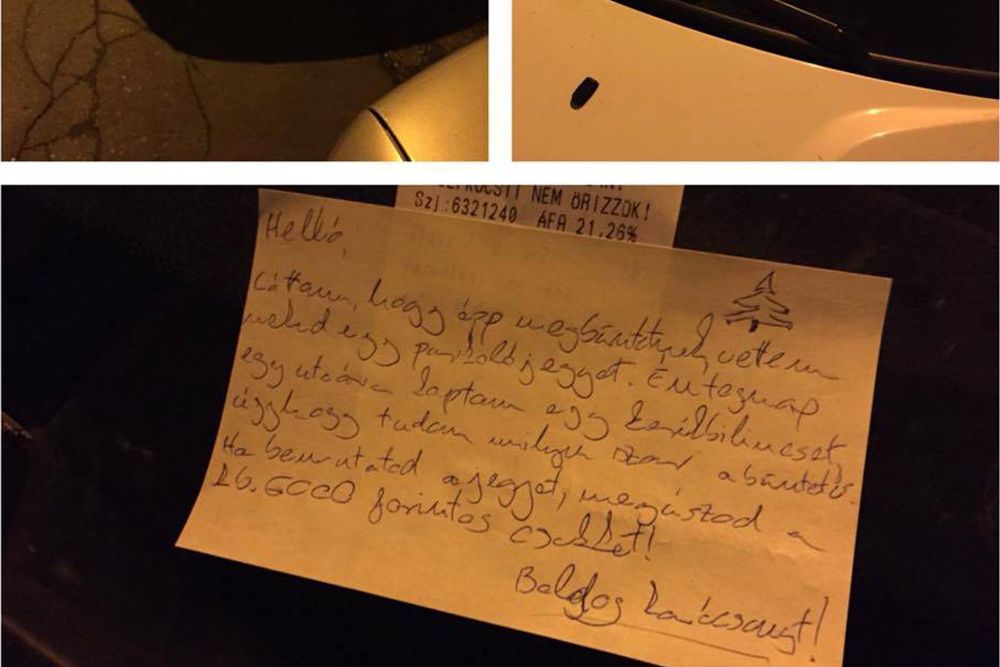 NEM ÖRIZZÜK!
Szj:6321240 ÁFA 21,26%
Helló,
Láttam, hogy épp megbüntetnek, vettem
neked egy parkolójegyet. Én tegnap
egy utcára kaptam egy kerékbilincset
úgyhogy tudom milyen szar a büntetés.
Ha bemutatod a jegyet, megúszod a
forintos csekket!
Boldog karácsonyt!